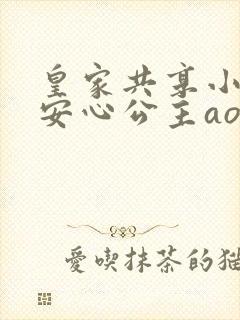 皇家共享小
安心公主ao
愛喫抹茶的猫